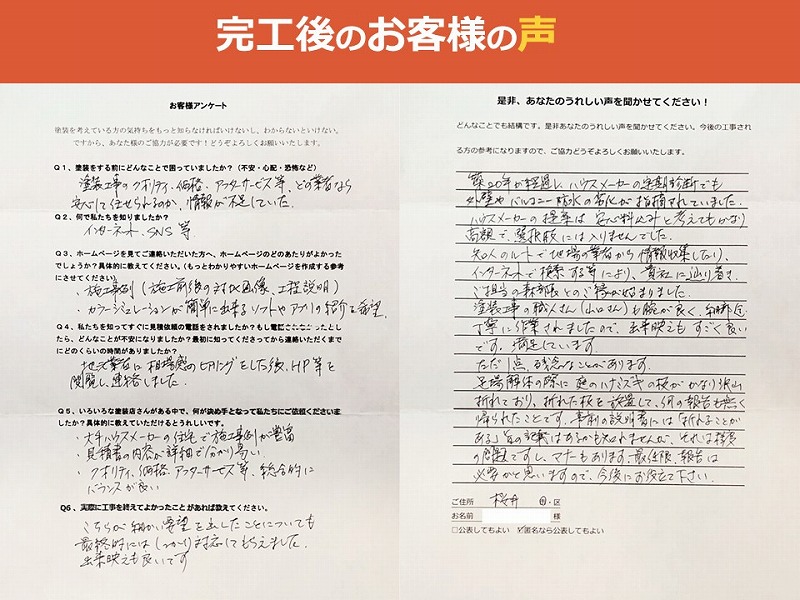 完工後のお客様の声
お客様アンケート
塗装を考えている方の気持ちをもっと知らなければいけないし、わからないといけない。
ですから、あなた様のご協力が必要です！どうぞよろしくお願いいたします。
Q１、塗装をする前にどんなことで困っていましたか？（不安・心配・恐怖など）
塗装工事のクオリティ、価格、アフターサービス等、どの業者なら
安心して任せられるのか、情報が不足していた。
Q２、何で私たちを知りましたか？
インターネット、SNS等
Q３、ホームページを見てご連絡いただいた方へ、ホームページのどのあたりがよかった
でしょうか？具体的に教えてください。（もっとわかりやすいホームページを作成する参考
にさせてください）
・施工事例（施工前後の対比画像、工程説明）
・カラーシュミレーションが簡単に出来るソフトやアプリの紹介を希望
Q４、私たちを知ってすぐに見積依頼の電話をされましたか？もし電話されなかったとし
たら、どんなことが不安になりましたか？最初に知ってくださってから連絡いただくまで
にどのくらいの時間がありましたか？
地元業者に相場感のヒアリングをした後、HP等を
閲覧し連絡しました。
Q５、いろいろな塗装店さんがある中で、何が決め手となって私たちにご依頼くださいま
したか？具体的に教えていただけるとうれしいです。
・大手ハウスメーカーの住宅で施工事例が豊富
・見積書の内容が詳細で分かり易い
・クオリティ、価格、アフターサービス等、総合的に
バランスが良い
Q６、実際に工事を終えてよかったことがあれば教えてください。
こちらが細かい要望を出したことについても
最終的にはしっかり対応してもらえました。
出来映えも良いです
是非、あなたのうれしい声を聞かせてください！
どんなことでも結構です。是非あなたのうれしい声を聞かせてください。今後の工事され
る方の参考になりますので、ご協力どうぞよろしくお願いします。
築20年が経過し、ハウスメーカーの定期診断でも
外壁やバルコニー防水の劣化が指摘されていました。
ハウスメーカーの提案は安心料込みと考えてもかなり
高額で、選択肢には入りませんでした。
知人のルートで地場の業者から情報収集したり、
インターネットで検索する等により、貴社に辿り着き、
ご担当の軒部長とのご縁が始まりました。
塗装工事の職人さん（山口さん）も腕が良く、細部迄
丁寧に作業されましたので、出来映えもすごく良い
です。満足しています。
ただ1点、残念なことがあります。
足場解体の際に庭のハナミズキの枝がかなり沢山
折れており、折れた枝を放置して、何の報告も無く
帰られたことです。事前の説明書には「折れることが
ある」旨の記載はあるかも知れませんが、それは程度
の問題ですし、マナーもあります。最低限、報告は
必要かと思いますので、今後にお役立て下さい。
ご住所 桜井 市・区
お名前 様
□公表してもよい ☑匿名なら公表してもよい